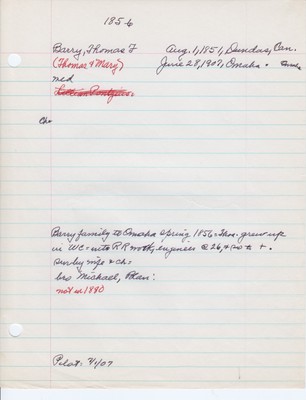 1856
Barry, Thomas F Aug. 1, 1851, Dundas, Can.
(Thomas & Mary) June 28, 1907, Omaha.
med
Ch=
Barry family to Omaha spring 1856= Thos. grew up
in WC= into RR work, engineer @ 26,
Surv by wife & Ch=
bro Michael,
not in 1880
Pilot: 7/1/07